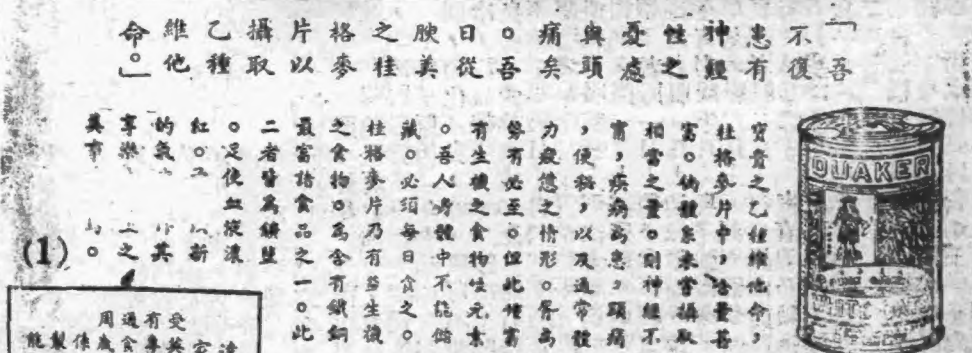 「吾
不復
患有
神經
性之
憂慮
與頭
痛矣
。吾
日從
腴美
之桂
格麥
片以
攝取
乙種
維他
命。」
QUAKER
WHITE OATS
寶貴之乙種維他命,
桂格麥片中,含量甚
富。倘體系未嘗攝取
相當之量。則神經不
甯,疾病為患,頭痛
,便秘,以及通常體
力疲憊之情形。胥為
勢有必至。但此種富
有生機之食物性元素
。吾人身體中不能儲
藏。必須每日食之。
桂格麥片乃有益生復
之食物。為含有鐵銅
最富諸食品之一。此
二者皆為鑛鹽
。足使血液濃
紅。 新
的氣 其
享樂 之
事 。
(1)
有受